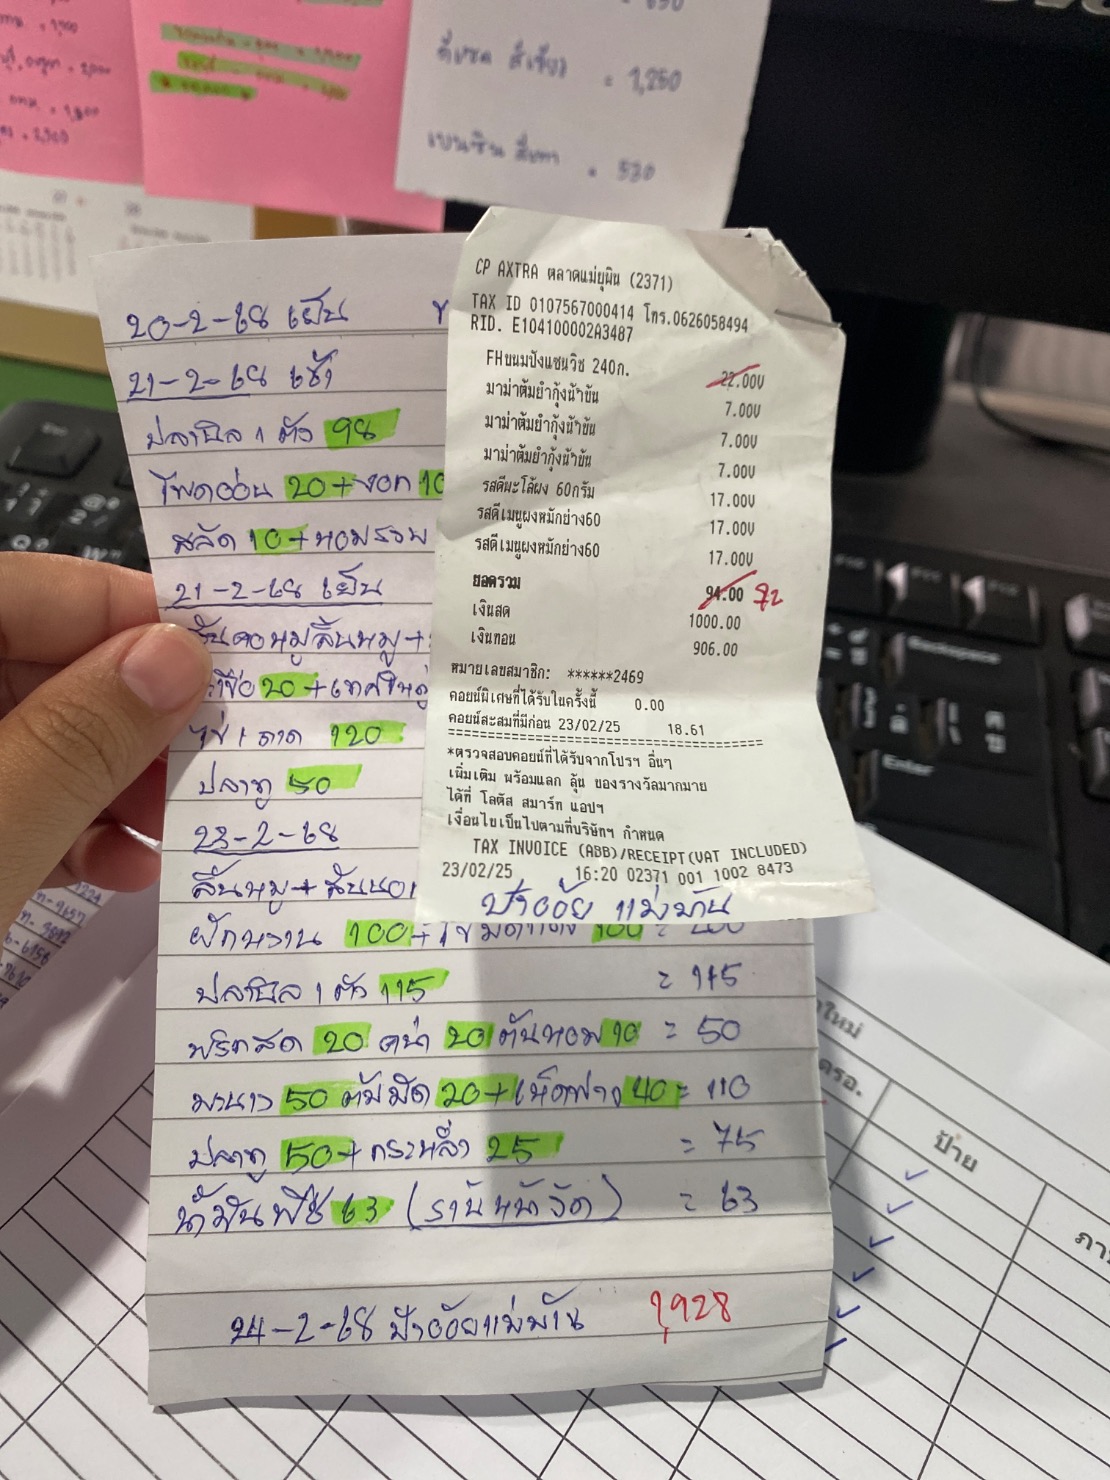 = 1,250
= 530
CP AXTRA ตลาดแม่ยุผิน (2371)
TAX ID 0107567000414 โทร.0626058494
RID. E104100002A3487
FHขนมปังแซนวิช 240ก. 22.00V
มาม่าต้มยำกุ้งน้ำข้น 7.00V
มาม่าต้มยำกุ้งน้ำข้น 7.00V
มาม่าต้มยำกุ้งน้ำข้น 7.00V
รสดีมะโล้ผง 60กรัม 17.00V
รสดีเมนูผงหมักย่าง60 17.00V
รสดีเมนูผงหมักย่าง60 17.00V
ยอดรวม 94.00 72
เงินสด 1000.00
เงินทอน 906.00
หมายเลขสมาชิก: ******2469
คอยน์พิเศษที่ได้รับในครั้งนี้ 0.00
คอยน์สะสมที่มีก่อน 23/02/25 18.61
*ตรวจสอบคอยน์ที่ได้รับจากโปรฯ อื่นๆ
เพิ่มเติม พร้อมแลก ลุ้น ของรางวัลมากมาย
ได้ที่ โลตัส สมาร์ท แอปฯ
เงื่อนไขเป็นไปตามที่บริษัทฯ กำหนด
TAX INVOICE (ABB)/RECEIPT(VAT INCLUDED)
23/02/25 16:20 02371 001 1002 8473
ป้าอ้อย แม่งมัน
20-2-68 เย็น
21-2-68 เช้า
ปลานิล 1 ตัว 98
โพดอ่อน 20+งอก 10
สลัด 10+หอมรวม
21-2-68 เย็น
สันคอหมูสิ้นหมู+
20+
ไข่ 1 ถาด 120
ปลาทู 50
23-2-68
สิ้นหมู+
ฝักหวาน 100+ไข่มดแดง 100 = 200
ปลานิล 1 ตัว 115 = 115
พริกสด 20 คน้า 20 ต้นหอม 10 = 50
มะนาว 50 ตับมัด 20+เห็ดฟาง 40 = 110
ปลาทู 50+กระหล่ำ 25 = 75
น้ำมันพืช 63 (ร้านหน้าวัด) = 63
24-2-68 ป้าอ้อยแม่งมัน 1,928
ใหม่
ครอ.
ป้าย